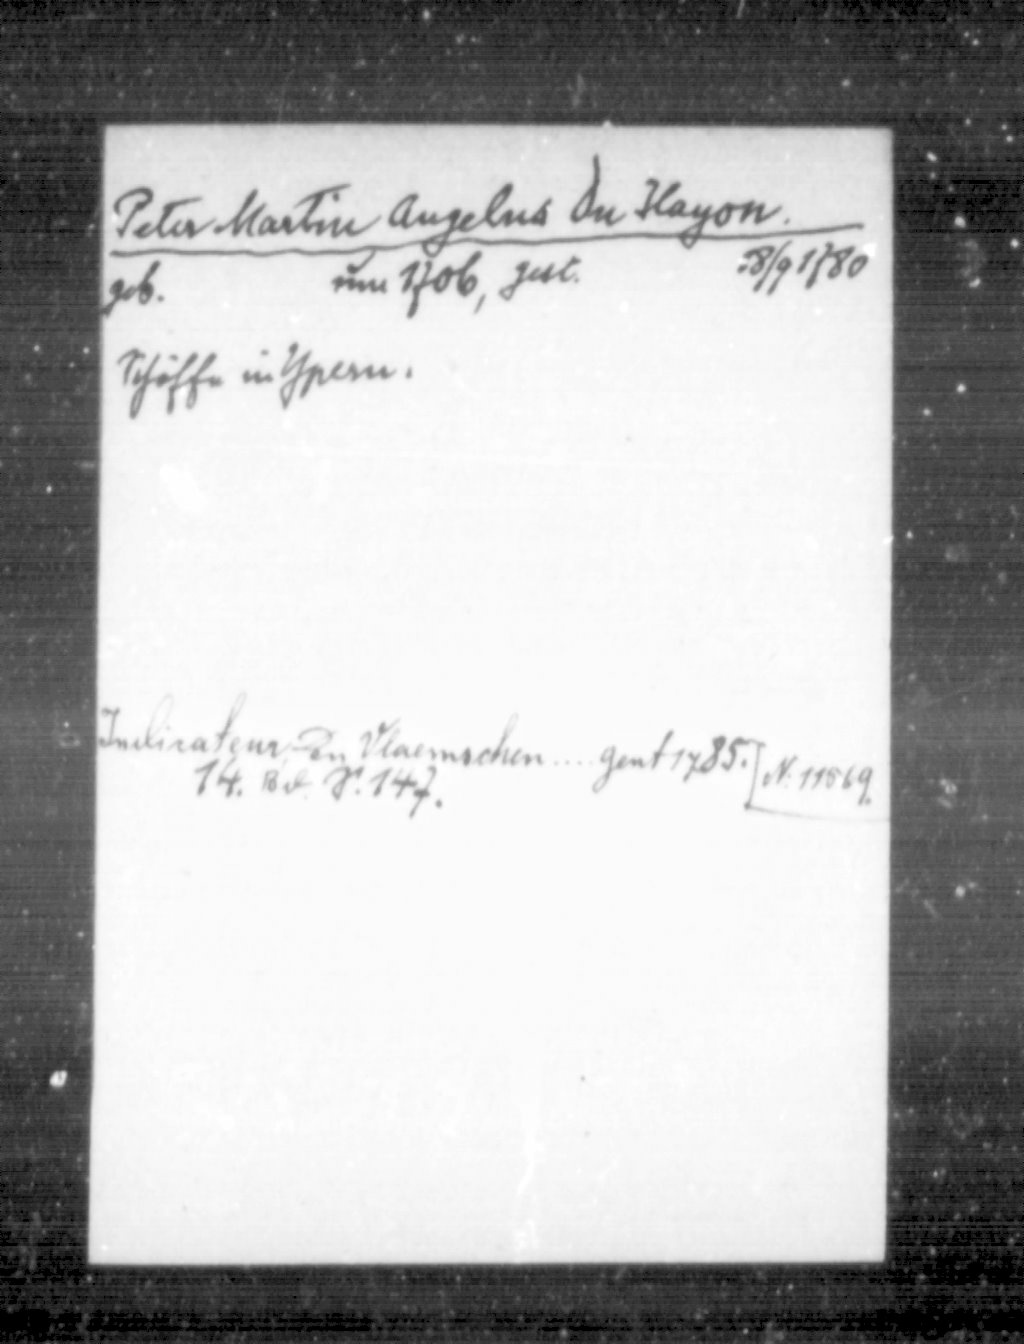 Peter Martin Angelus Du Hayon.
geb. um 1706, gest. 28/9 1780
Schöffe in Ypern.
Indicateur, Den Vlaemschen .... gent 1785.] N. 11569.
14. Bd. S. 147.